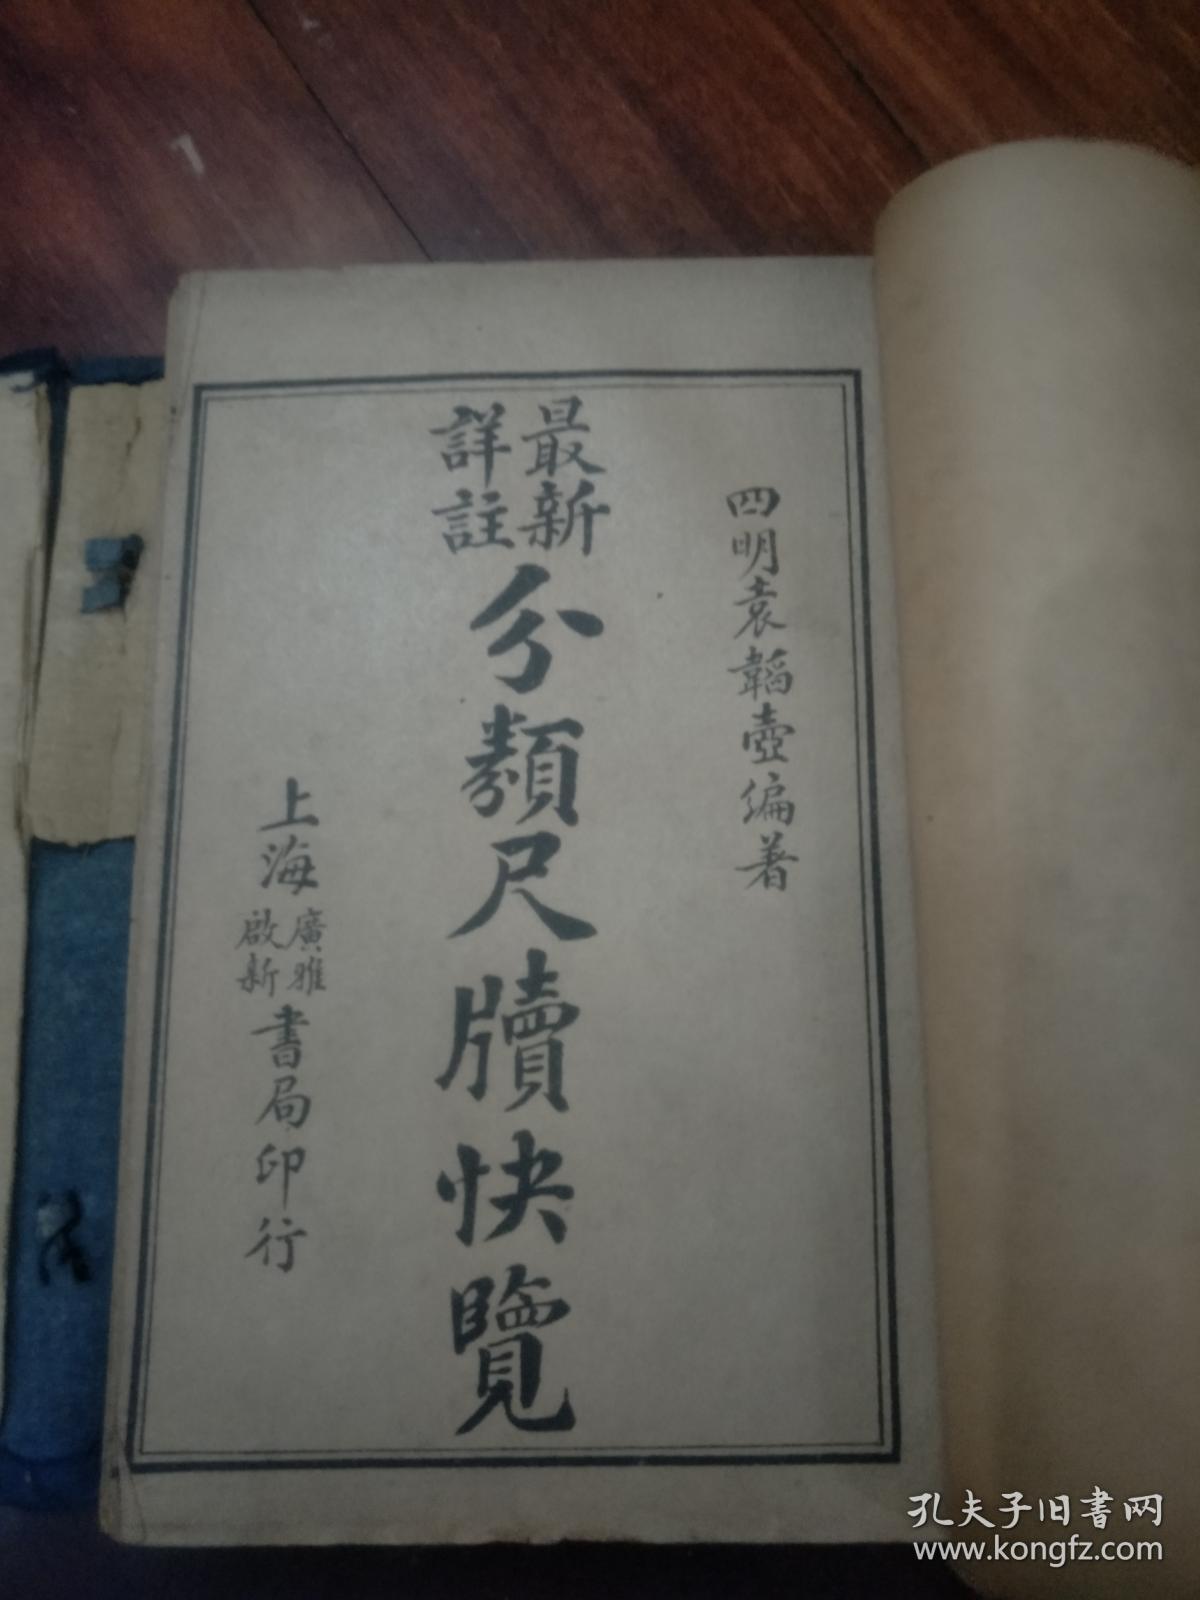 四明袁韜壺編著
最新
詳註
分類尺牘快覽
上海
廣雅
啟新
書局印行
孔夫子旧书网
www.kongfz.com